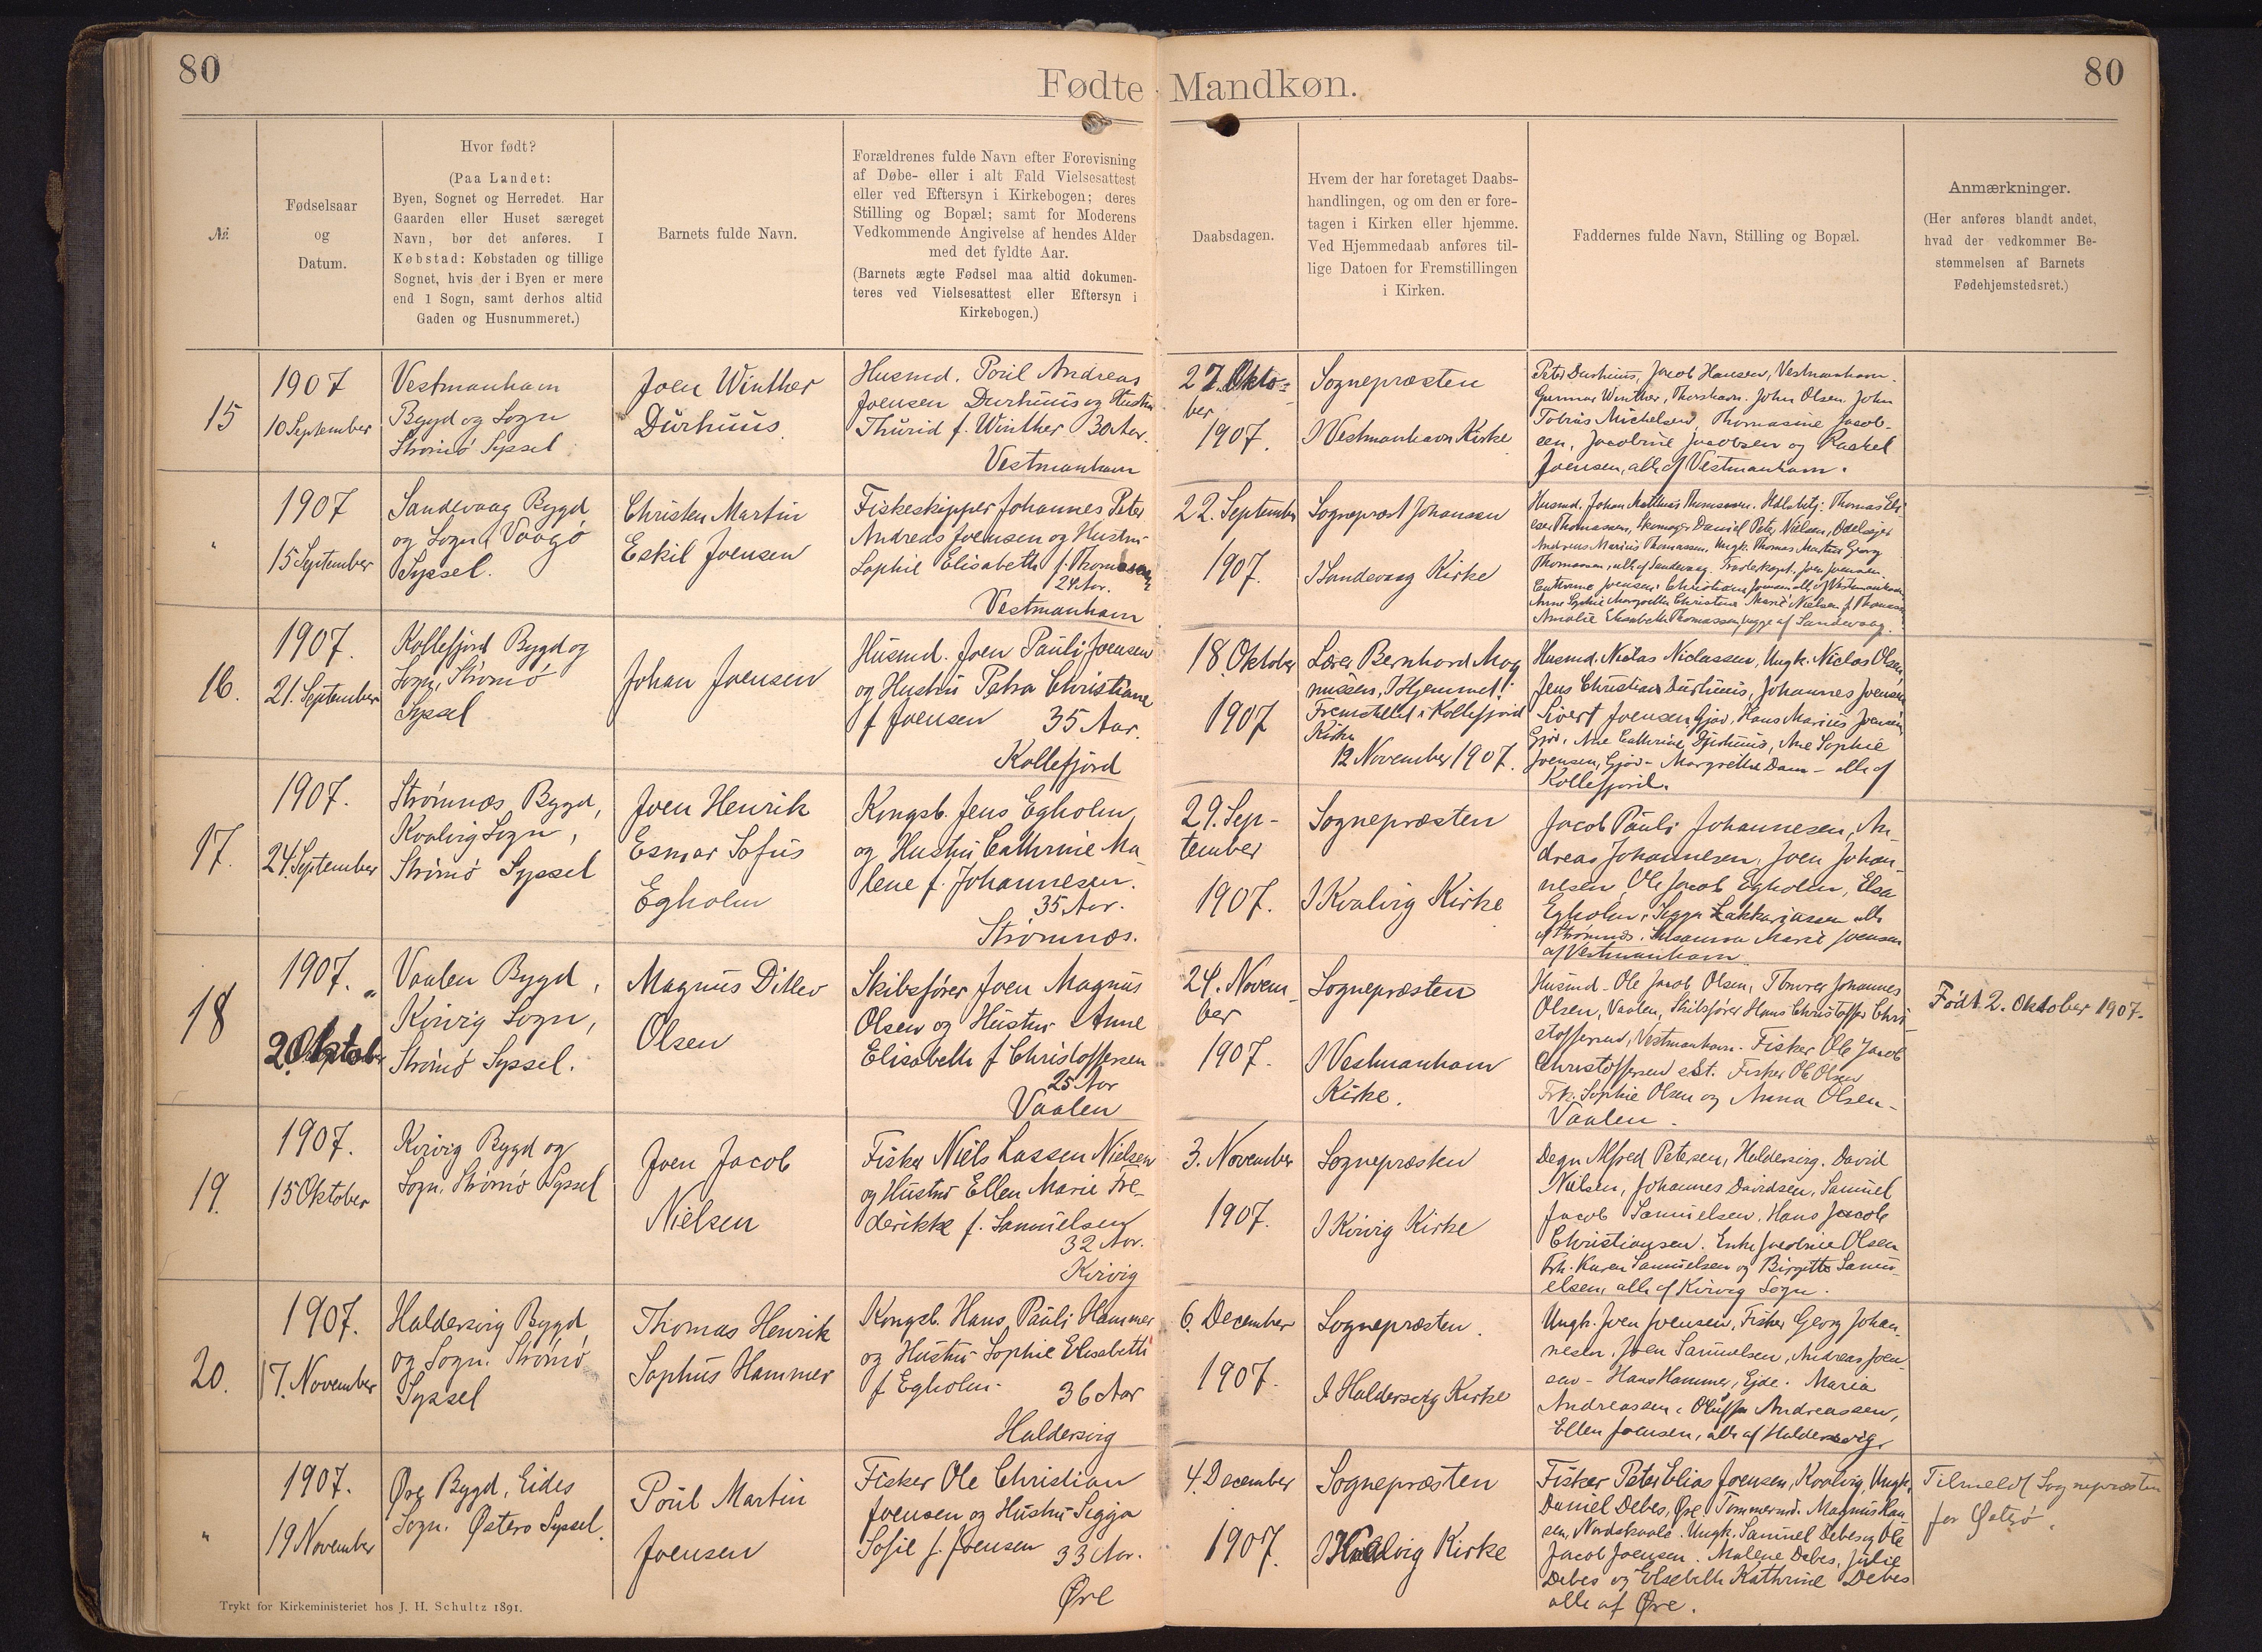 80
Fødte Mandkøn.
80
№
Fødselsaar
og
Datum.
Hvor født?
(Paa Landet:
Byen, Sognet og Herredet. Har
Gaarden eller Huset særeget
Navn, bør det anføres. I
Købstad: Købstaden og tillige
Sognet, hvis der i Byen er mere
end 1 Sogn, samt derhos altid
Gaden og Husnummeret.)
Barnets fulde Navn.
Forældrenes fulde Navn efter Forevisning
af Døbe- eller i alt Fald Vielsesattest
eller ved Eftersyn i Kirkebogen; deres
Stilling og Bopæl; samt for Moderens
Vedkommende Angivelse af hendes Alder
med det fyldte Aar.
(Barnets ægte Fødsel maa altid dokumen-
teres ved Vielsesattest eller Eftersyn i
Kirkebogen.)
Daabsdagen.
Hvem der har foretaget Daabs-
handlingen, og om den er fore-
tagen i Kirken eller hjemme.
Ved Hjemmedaab anføres til-
lige Datoen for Fremstillingen
i Kirken.
Faddernes fulde Navn, Stilling og Bopæl.
Anmærkninger.
(Her anføres blandt andet,
hvad der vedkommer Be-
stemmelsen af Barnets
Fødehjemstedsret.)
15
1907
10 September
Vestmanhavn
Bygd og Sogn
Strømø Syssel
Joen Winther
Durhuus.
Husmd. Poul Andreas
Joensen Durhuus og Hustru
Thurid f. Winther 30 Aar.
Vestmanhavn
27. Okto-
ber
1907.
Sognepræsten
I Vestmanhavn Kirke
Peter Durhuus, Jacob Hansen, Vestmanhavn.
Gunnar Winther, Thorshavn. John Olsen. John
Tobias Michelsen, Thomasine Jacob-
sen, Jacobine Jacobsen og Rachel
Joensen, alle af Vestmanhavn.
"
1907
15 September
Sandevaag Bygd
og Sogn, Vaagø
Syssel.
Christen Martin
Eskil Joensen
Fiskeskipper Johannes Peter
Andreas Joensen og Hustru
Sophie Elisabeth f. Thomassen
24 Aar.
Vestmanhavn
22. September
1907.
Sogneprest Johansen
I Sandevaag Kirke
Husmd. Johan Matthias Thomassen. Thomas Eli-
eser Thomassen, Skomager Daniel Peter Nielsen, Odelsejer
Andreas Marius Thomassen, Ungk. Thomas Martin Georg
Thomassen, alle af Sandevaag. Joen Joensen
Cathrine Joensen, Christiane Joensen alle af Vestmanhavn
Anne Sophie Margrethe Christine Marie Nielsen f. Thomassen
Amalie Elisabeth Thomassen, begge af Sandevaag.
16.
1907.
21. September
Kollefjord Bygd og
Sogn, Strømø
Syssel
Johan Joensen
Husmd. Joen Pauli Joensen
og Hustru Petra Christiane
f. Joensen 35 Aar.
Kollefjord
18. Oktober
1907
Lærer Bernhard Mag
nussen, I Hjemmet.
Fremstillet i Kollefjord
Kirke
12 November 1907.
Husmd. Niclas Niclassen, Ungk. Niclas Olsen,
Jens Christian Durhuus, Johannes Joensen
Sivert Joensen, Gjov, Hans Marius Joensen,
Gjov, Ane Cathrine Durhuus, Ane Sophie
Joensen, Gjov - Margrethe Dam - alle af
Kollefjord.
17.
1907.
24. September
Strømnæs Bygd,
Kvalvig Sogn,
Strømø Syssel
Joen Henrik
Esmar Sofus
Egholm
Kongsb. Jens Egholm
og Hustru Cathrine Ma-
lene f. Johannesen.
35 Aar.
Strømnæs.
29. Sep-
tember
1907.
Sognepræsten
I Kvalvig Kirke
Jacob Pauli Johannesen, An-
dreas Johannesen, Joen Johan-
nesen, Ole Jacob Egholm, Elsa
Egholm, Segga Zakkariasen alle
af Strømnæs. Susanna Marie Joensen
af Vestmanhavn.
18
1907.
2 Oktober
Vaalen Bygd,
Kvivig Sogn,
Strømø Syssel.
Magnus Ditlev
Olsen
Skibsfører Joen Magnus
Olsen og Hustru Anne
Elisabeth f. Christoffersen
25 Aar
Vaalen
24. Novem-
ber
1907.
Sognepræsten
I Vestmanhavn
Kirke.
Husmd. Ole Jacob Olsen, Tømrer Johannes
Olsen, Vaalen, Skibsfører Hans Christoffer Chri-
stoffersen, Vestmanhavn. Fisker Ole Jacob
Christoffersen sst. Fisker Ole Olsen
Frk. Sophie Olsen og Anna Olsen -
Vaalen.
Født 2. Oktober 1907.
19.
1907.
15 Oktober
Kvivig Bygd og
Sogn, Strømø Syssel
Joen Jacob
Nielsen
Fisker Niels Lassen Nielsen
og Hustru Ellen Marie Fre-
derikke f. Samuelsen
32 Aar.
Kvivig
3. November
1907.
Sognepræsten
I Kvivig Kirke
Degn Alfred Petersen, Haldersvig. David
Nielsen, Johannes Davidsen, Samuel
Jacob Samuelsen, Hans Jacob
Christiansen. Enke Jacobine Olsen
Frk. Karen Samuelsen og Birgitte Samu-
elsen, alle af Kvivig Sogn.
20.
1907.
17. November
Haldersvig Bygd
og Sogn. Strømø
Syssel
Thomas Henrik
Sophus Hammer
Kongsb. Hans Pauli Hammer
og Hustru Sophie Elisabeth
f. Egholm. 36 Aar
Haldersvig
6. December
1907.
Sognepræsten.
I Haldersvig Kirke
Ungk. Joen Joensen, Fisker Georg Johan-
nesen, Joen Samuelsen, Andreas Joen-
sen - Hans Hammer, Ejde. Maria
Andreassen, Oluffa Andreassen,
Ellen Joensen, alle af Haldersvig.
"
1907.
19 November
Øre Bygd, Eides
Sogn. Østerø Syssel.
Poul Martin
Joensen
Fisker Ole Christian
Joensen og Hustru Segga
Sofie f. Joensen 33 Aar.
Øre
4. December
1907.
Sognepræsten
I Kvalvig Kirke
Fisker Peter Elias Joensen, Kvalvig, Ungk.
Daniel Debes, Øre. Tømmermd. Magnus Han-
sen, Nordskaale. Ungk. Samuel Debes og Ole
Jacob Joensen. Malene Debes, Julie
Debes og Elsebeth Kathrine Debes
alle af Øre.
Tilmeldt Sognepræsten
for Østerø.
Trykt for Kirkeministeriet hos J. H. Schultz 1891.